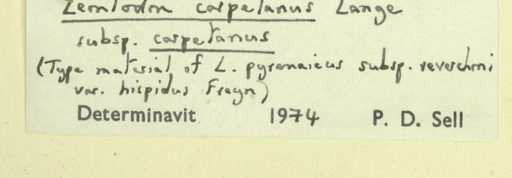 Leontodon carpetanus Lange
subsp. carpetanus
(Type material of L. pyrenaicus subsp. reverchoni
var. hispidus Freyn)
Determinavit 1974 P. D. Sell